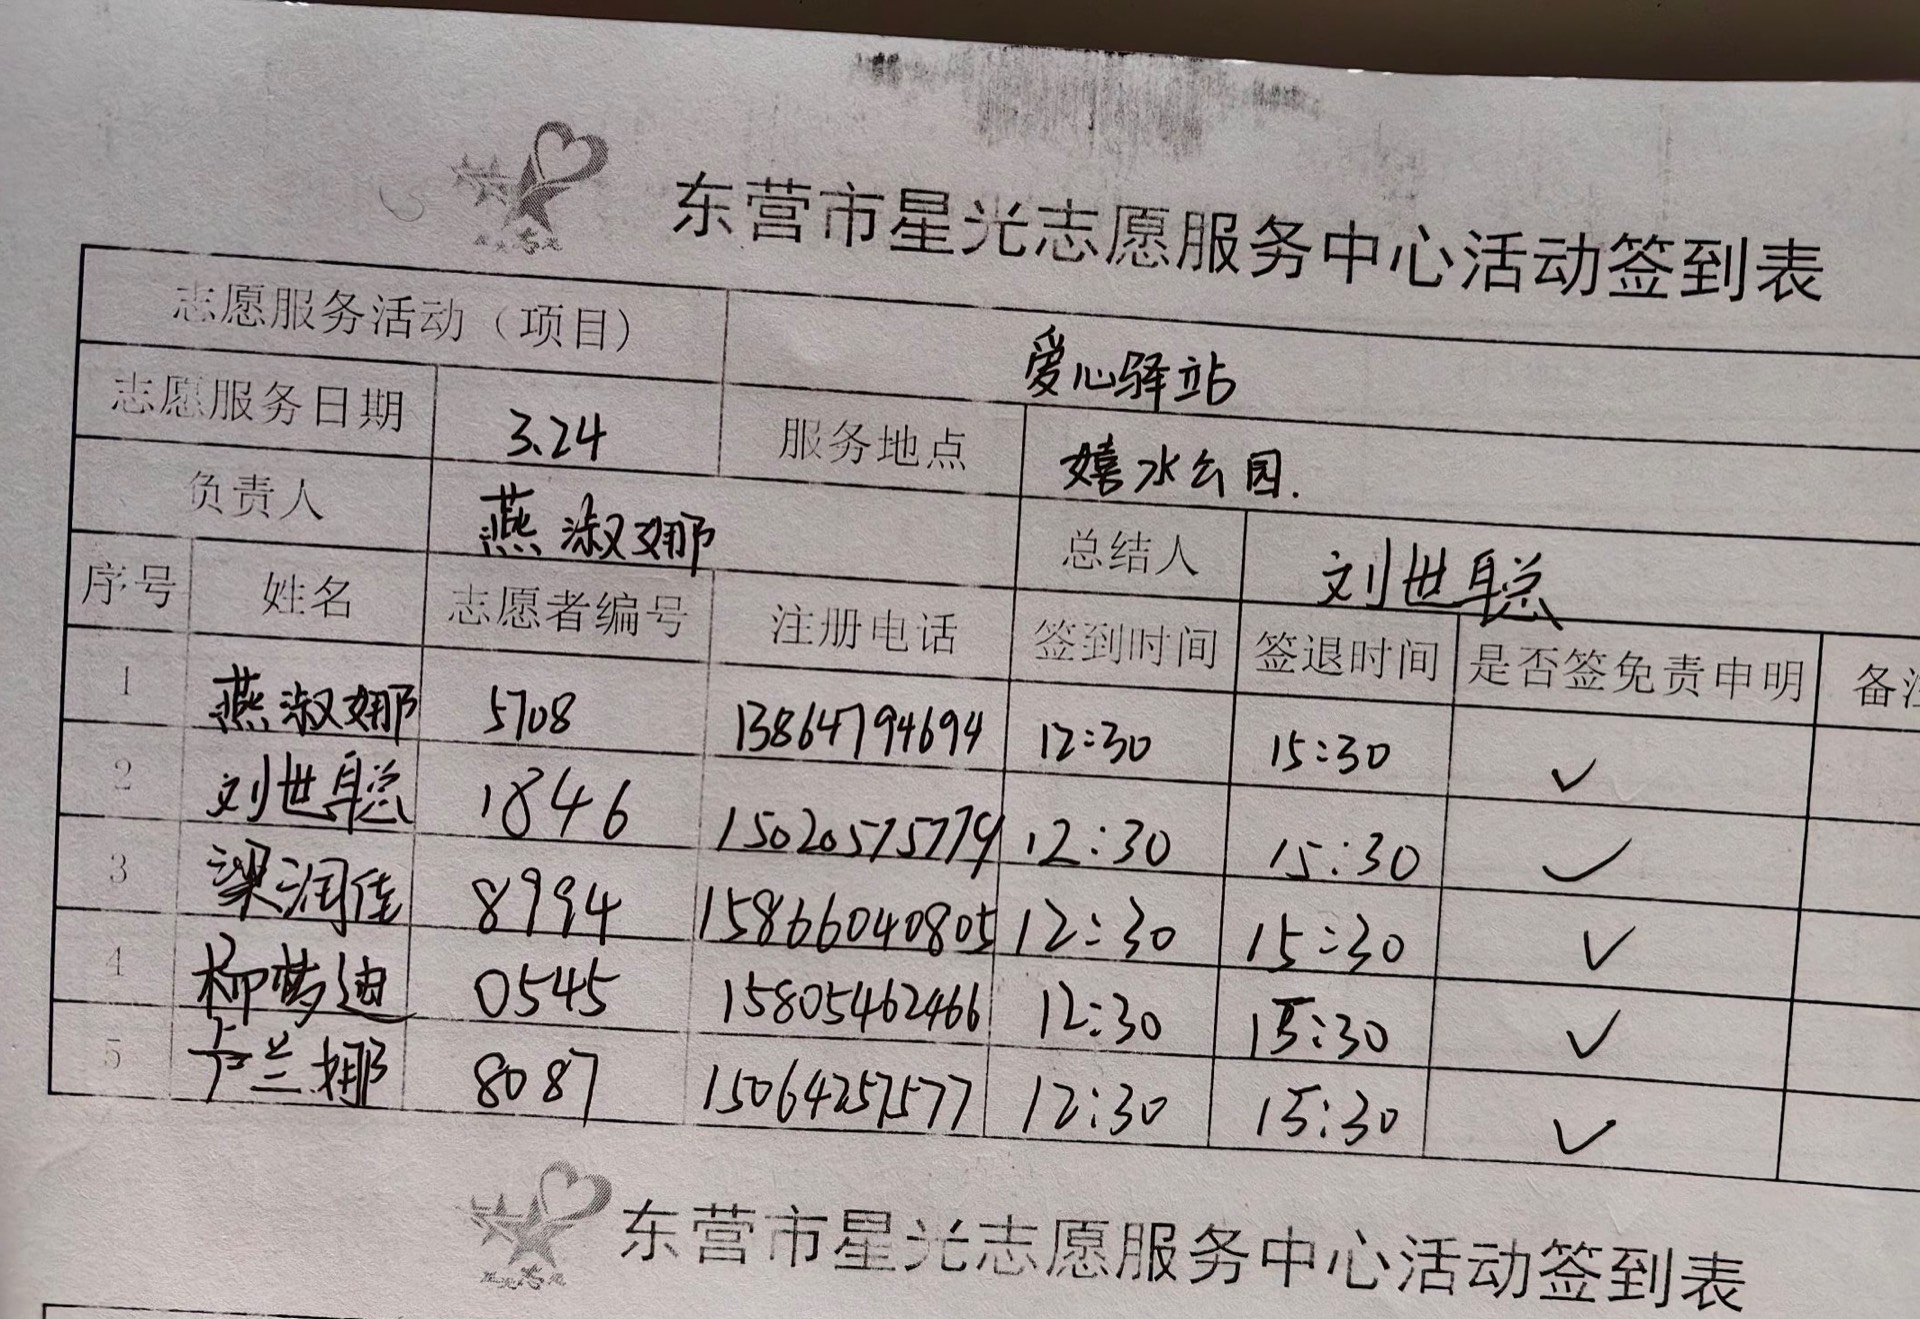 东营市星光志愿服务中心活动签到表
志愿服务活动（项目） 爱心驿站
志愿服务日期 3.24 服务地点 嬉水公园.
负责人 燕淑娜 总结人 刘世聪
序号 姓名 志愿者编号 注册电话 签到时间 签退时间 是否签免责申明 备注
1 燕淑娜 5708 13864794694 12:30 15:30 ✓
2 刘世聪 1846 15020575779 12:30 15:30 ✓
3 梁润佳 8994 15866040805 12:30 15:30 ✓
4 柳梦迪 0545 15805462466 12:30 15:30 ✓
5 卢兰娜 8087 15064257577 12:30 15:30 ✓
东营市星光志愿服务中心活动签到表